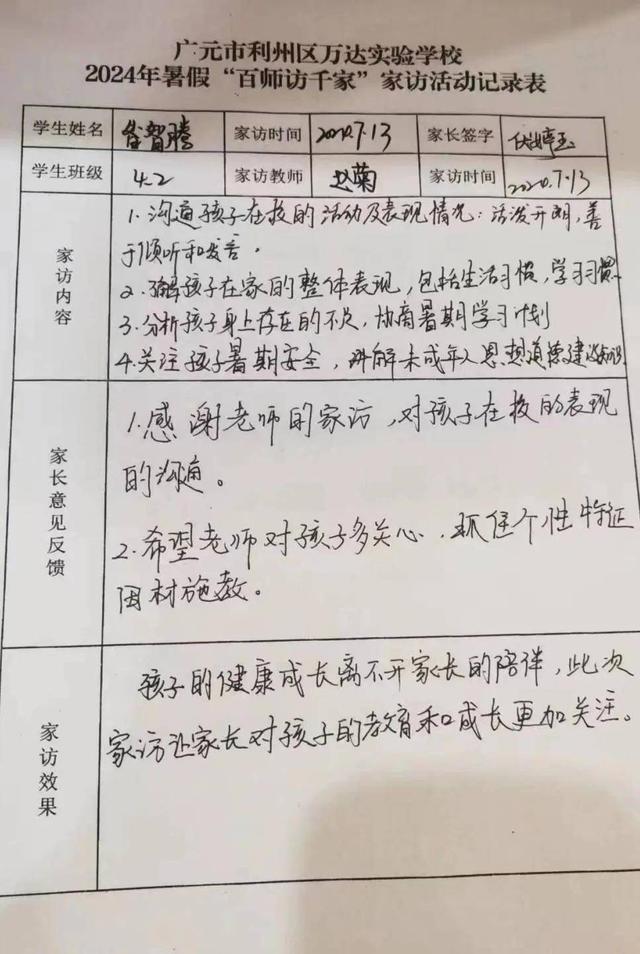 广元市利州区万达实验学校
2024年暑假“百师访千家”家访活动记录表
学生姓名 智腾 家访时间 2024.7.13 家长签字
学生班级 4.2 家访教师 赵菊 家访时间 2024.7.13
家访内容
1.沟通孩子在校的活动及表现情况：活泼开朗，善
于倾听和发言。
2.了解孩子在家的整体表现，包括生活习惯，学习习惯
3.分析孩子身上存在的不足，协商暑期学习计划
4.关注孩子暑期安全，讲解未成年人思想道德建设知识
家长意见反馈
1.感谢老师的家访，对孩子在校的表现
的沟通。
2.希望老师对孩子多关心，抓住个性特征
因材施教。
家访效果
孩子的健康成长离不开家长的陪伴，此次
家访让家长对孩子的教育和成长更加关注。